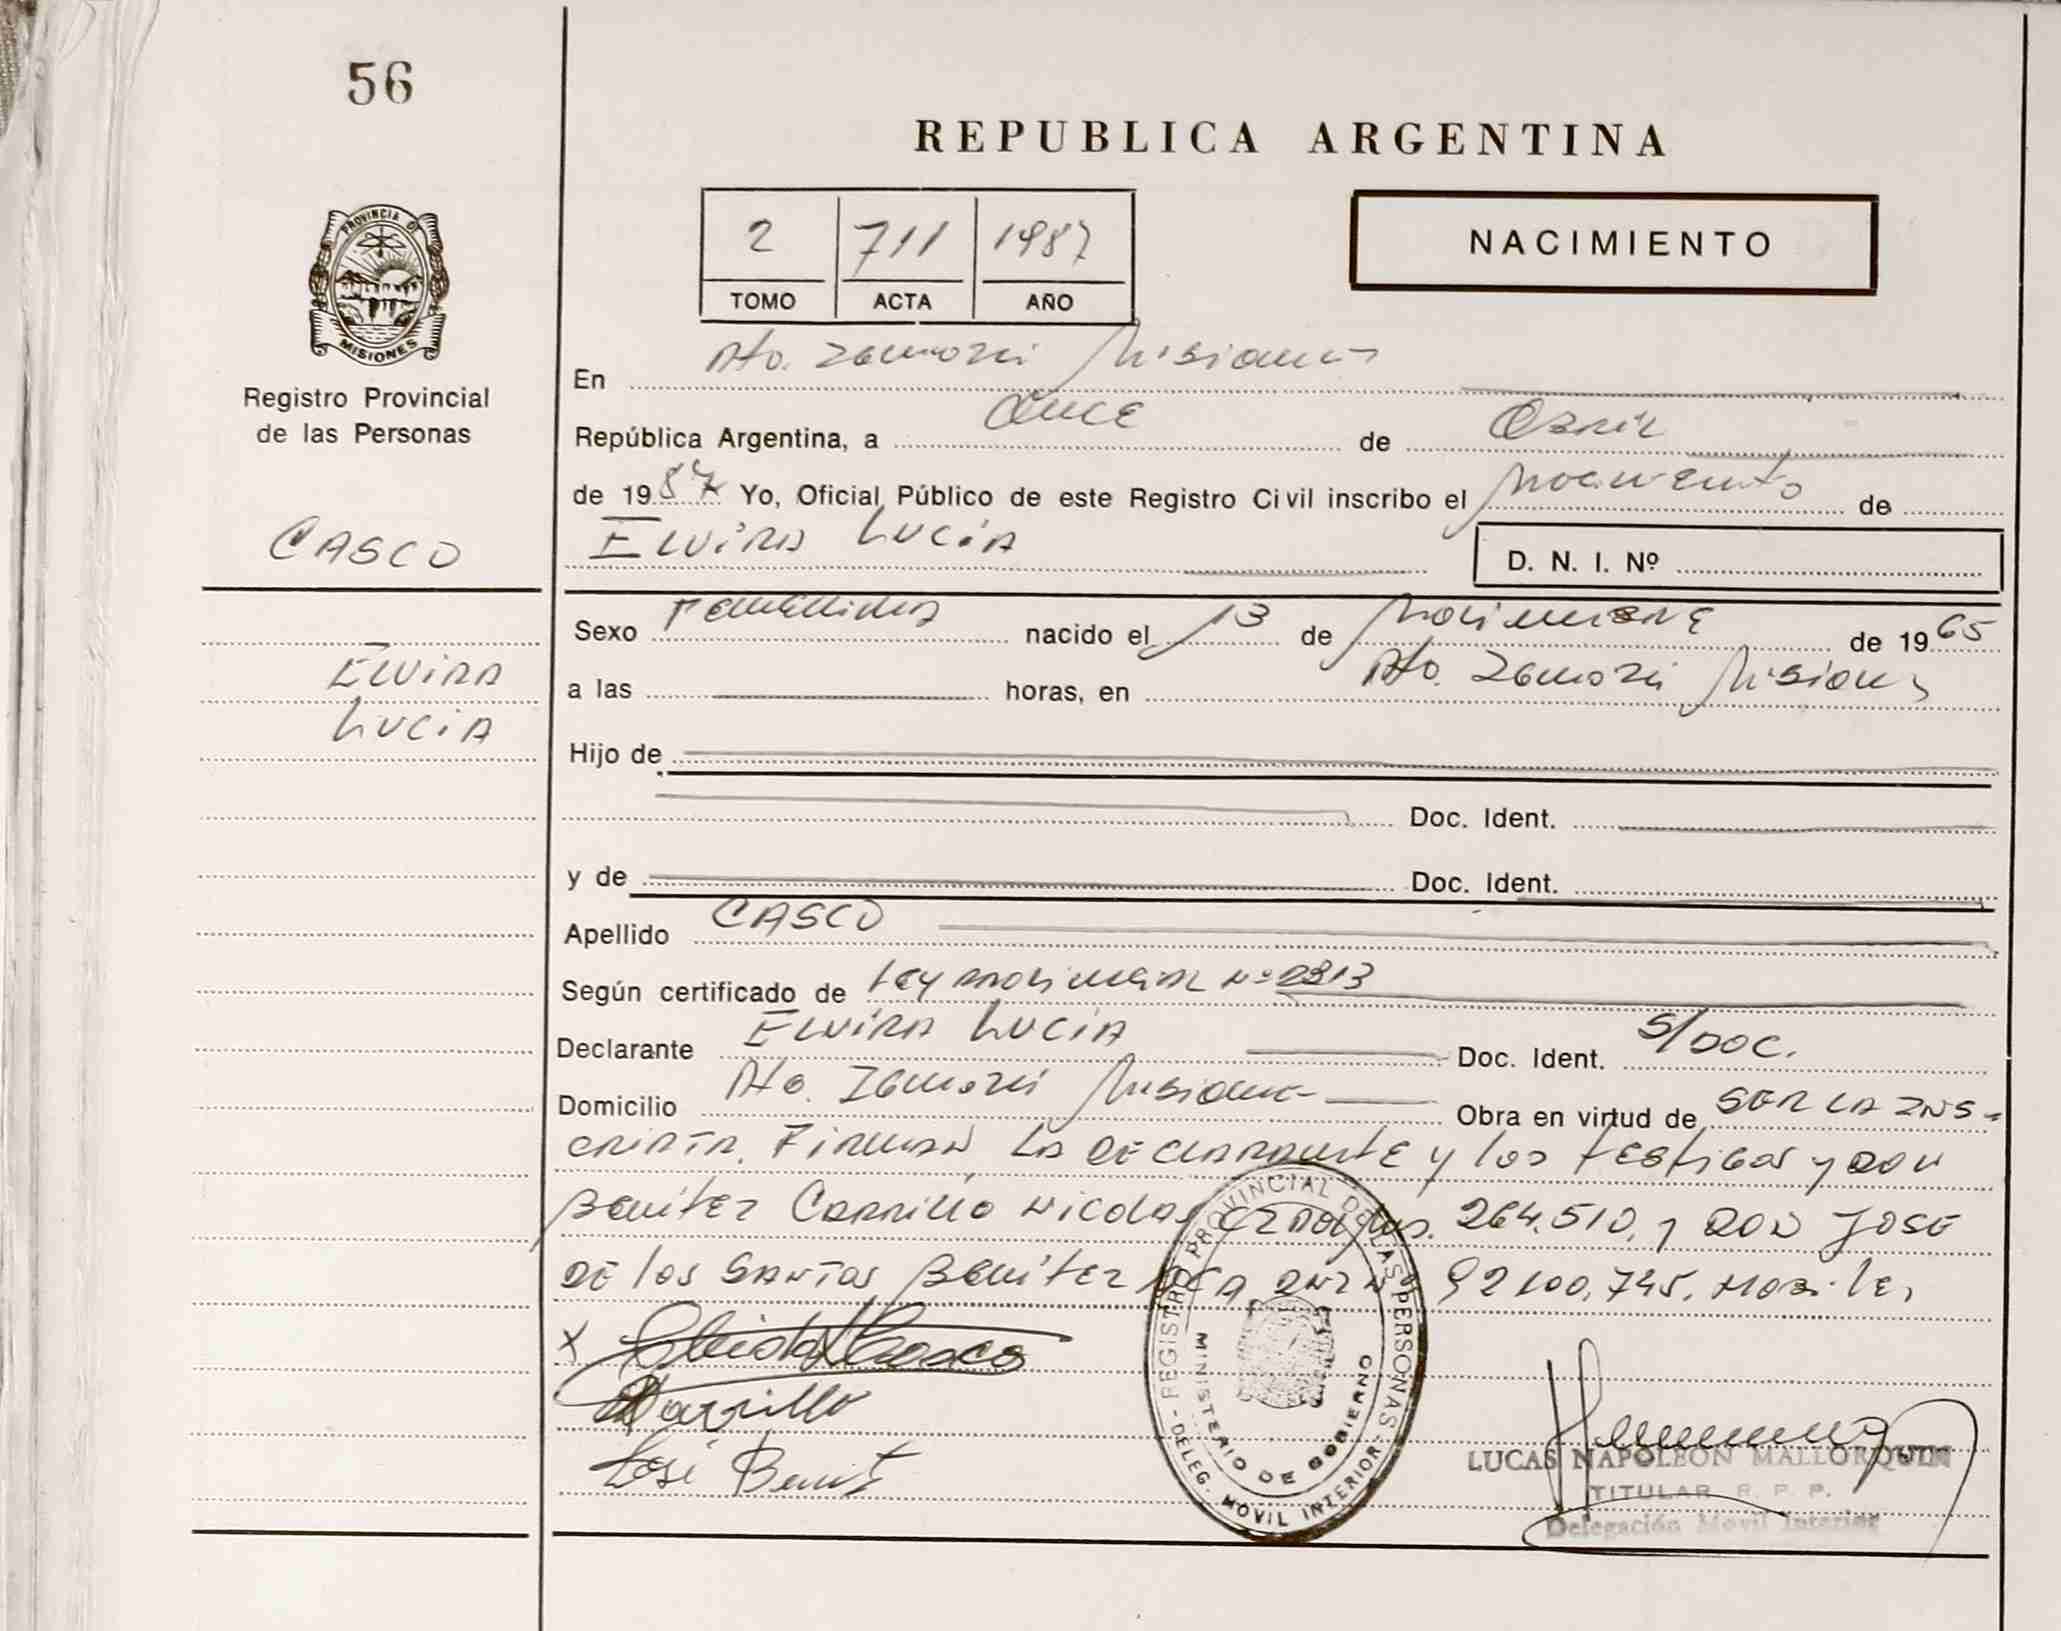 56
REPUBLICA ARGENTINA
PROVINCIA DE
MISIONES
Registro Provincial
de las Personas
2 711 1987
TOMO ACTA AÑO
NACIMIENTO
En Pto. Misiones
República Argentina, a Once de Abril
de 1987 Yo, Oficial Público de este Registro Civil inscribo el Nacimiento de
CASCO
ELVIRA LUCIA
D. N. I. Nº
Sexo Femenino nacido el 13 de Noviembre de 1965
ELVIRA
LUCIA
a las horas, en Pto. Misiones
Hijo de
Doc. Ident.
y de Doc. Ident.
Apellido CASCO
Según certificado de Ley Provincial Nº 2313
Declarante ELVIRA LUCIA Doc. Ident. S/DOC.
Domicilio Pto. Misiones Obra en virtud de SER LA INS-
CRIPTA. FIRMAN LA DECLARANTE y los testigos, DON
Benitez Carrillo Nicolas 264.510, y DON JOSE
DE los SANTOS Benitez Nº 92100.745.
Carrillo
José Benit
REGISTRO PROVINCIAL DE LAS PERSONAS
MINISTERIO DE GOBIERNO
DELEG. MOVIL INTERIOR
LUCAS NAPOLEON MALLORQUIN
TITULAR R. P. P.
Delegación Movil Interior